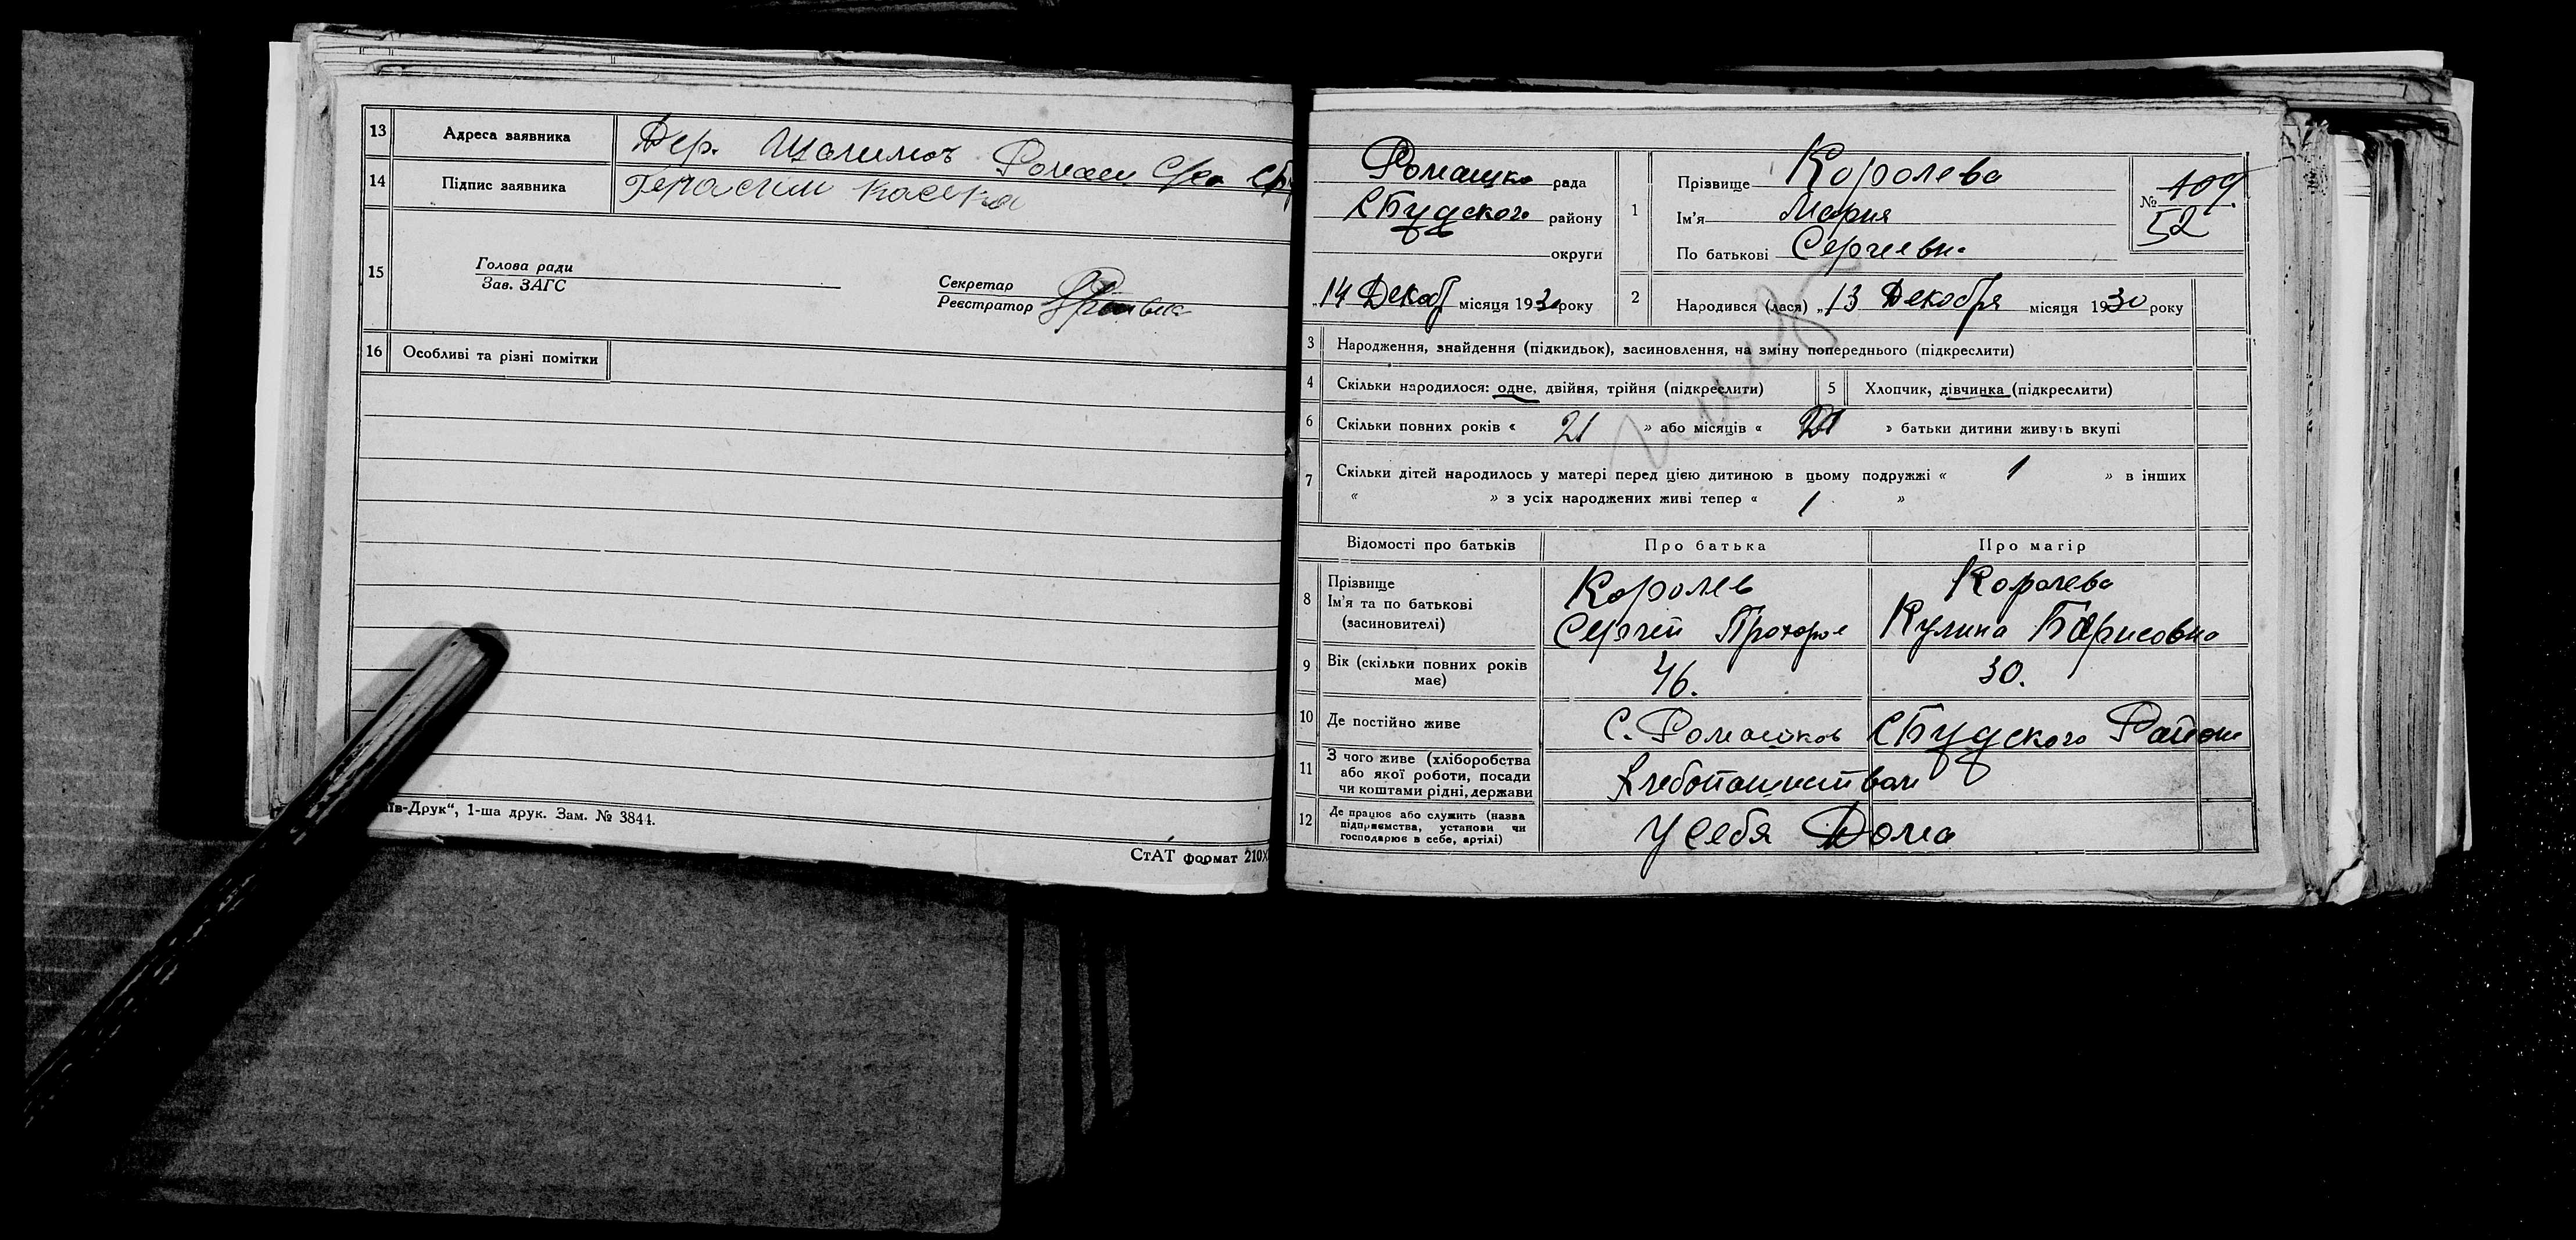 13 Адреса заявника Дер. Шалимов Ромаш С/са
14 Підпис заявника Герасим
15 Голова ради
Зав. ЗАГС
Секретар
Реєстратор
16 Особливі та різні помітки
ів-Друк“, 1-ша друк. Зам. № 3844.
СтАТ формат 210х
Ромашко рада
СБудского району
округи
„14 Декабр місяця 1930 року
1 Прізвище Королева
Ім'я Мария
По батькові Сергеевна
№ 109
52
2 Народився (лася) „13 Декабря місяця 1930 року
3 Народження, знайдення (підкидьок), засиновлення, на зміну попереднього (підкреслити)
4 Скільки народилося: одне, двійня, трійня (підкреслити) 5 Хлопчик, дівчинка (підкреслити)
6 Скільки повних років « 21 » або місяців « 21 » батьки дитини живуть вкупі
7 Скільки дітей народилось у матері перед цією дитиною в цьому подружжі « 1 » в інших
« » з усіх народжених живі тепер « 1 »
Відомості про батьків Про батька Про матір
8 Прізвище Королев Королева
Ім'я та по батькові Сергей Прохоров Кулина Борисовна
(засиновителі)
9 Вік (скільки повних років має) 46. 30.
10 Де постійно живе С. Ромашков СБудского Района
11 З чого живе (хліборобства
або якої роботи, посади
чи коштами рідні, держави Хлебопашеством
12 Де працює або служить (назва
підприємства, установи чи
господарює в себе, артілі) У себя Дома